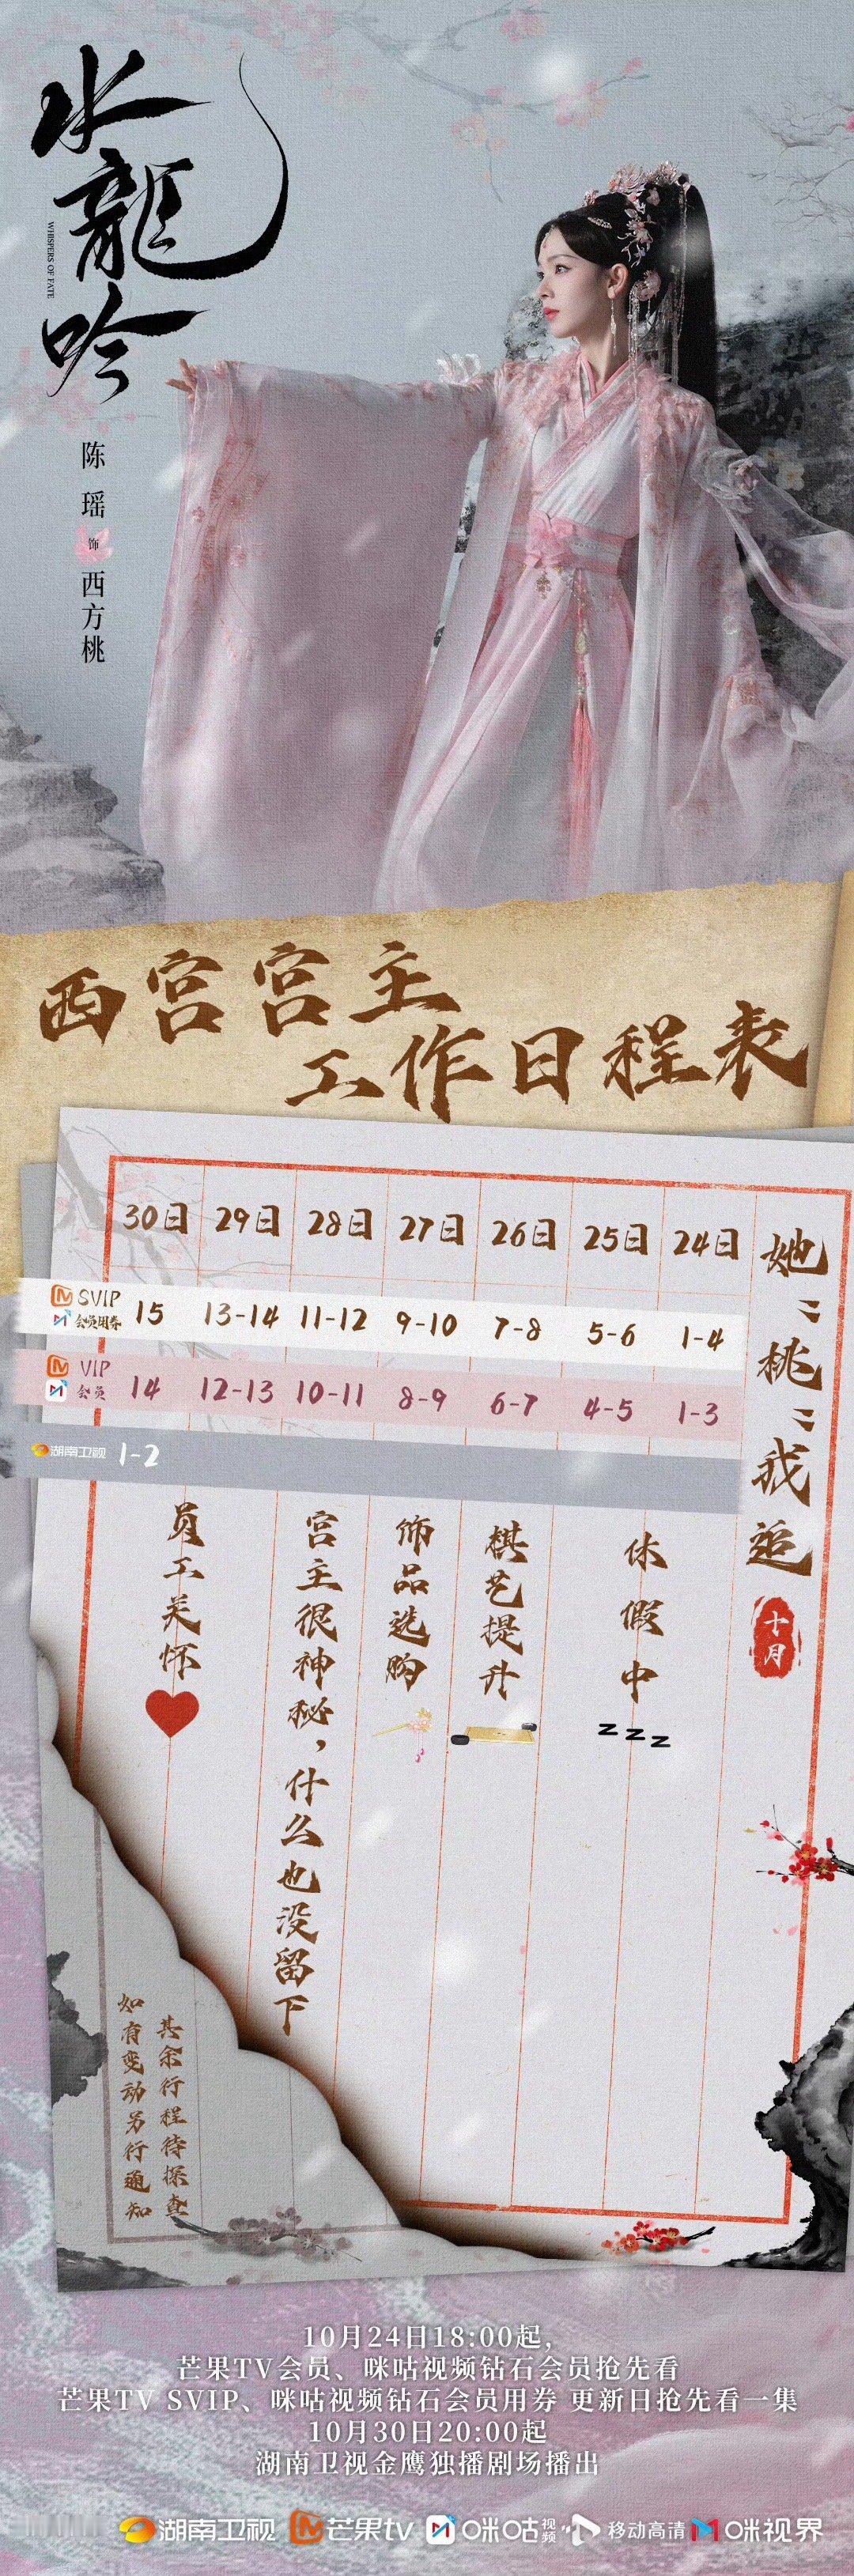 水龍吟
WHISPERS OF FATE
陈瑶
饰
西方桃
西宫宫主
工作日程表
30日 29日 28日 27日 26日 25日 24日
SVIP
会员用券 15 13-14 11-12 9-10 7-8 5-6 1-4
VIP
会员 14 12-13 10-11 8-9 6-7 4-5 1-3
湖南卫视 1-2
她:桃:我追
十月
休假中
zzz
棋艺提升
饰品选购
宫主很神秘，什么也没留下
员工关怀
其余行程待探查
如有变动另行通知
10月24日18:00起,
芒果TV会员、咪咕视频钻石会员抢先看
芒果TV SVIP、咪咕视频钻石会员用券 更新日抢先看一集
10月30日20:00起
湖南卫视金鹰独播剧场播出
湖南卫视 芒果tv 咪咕视频 移动高清 咪视界